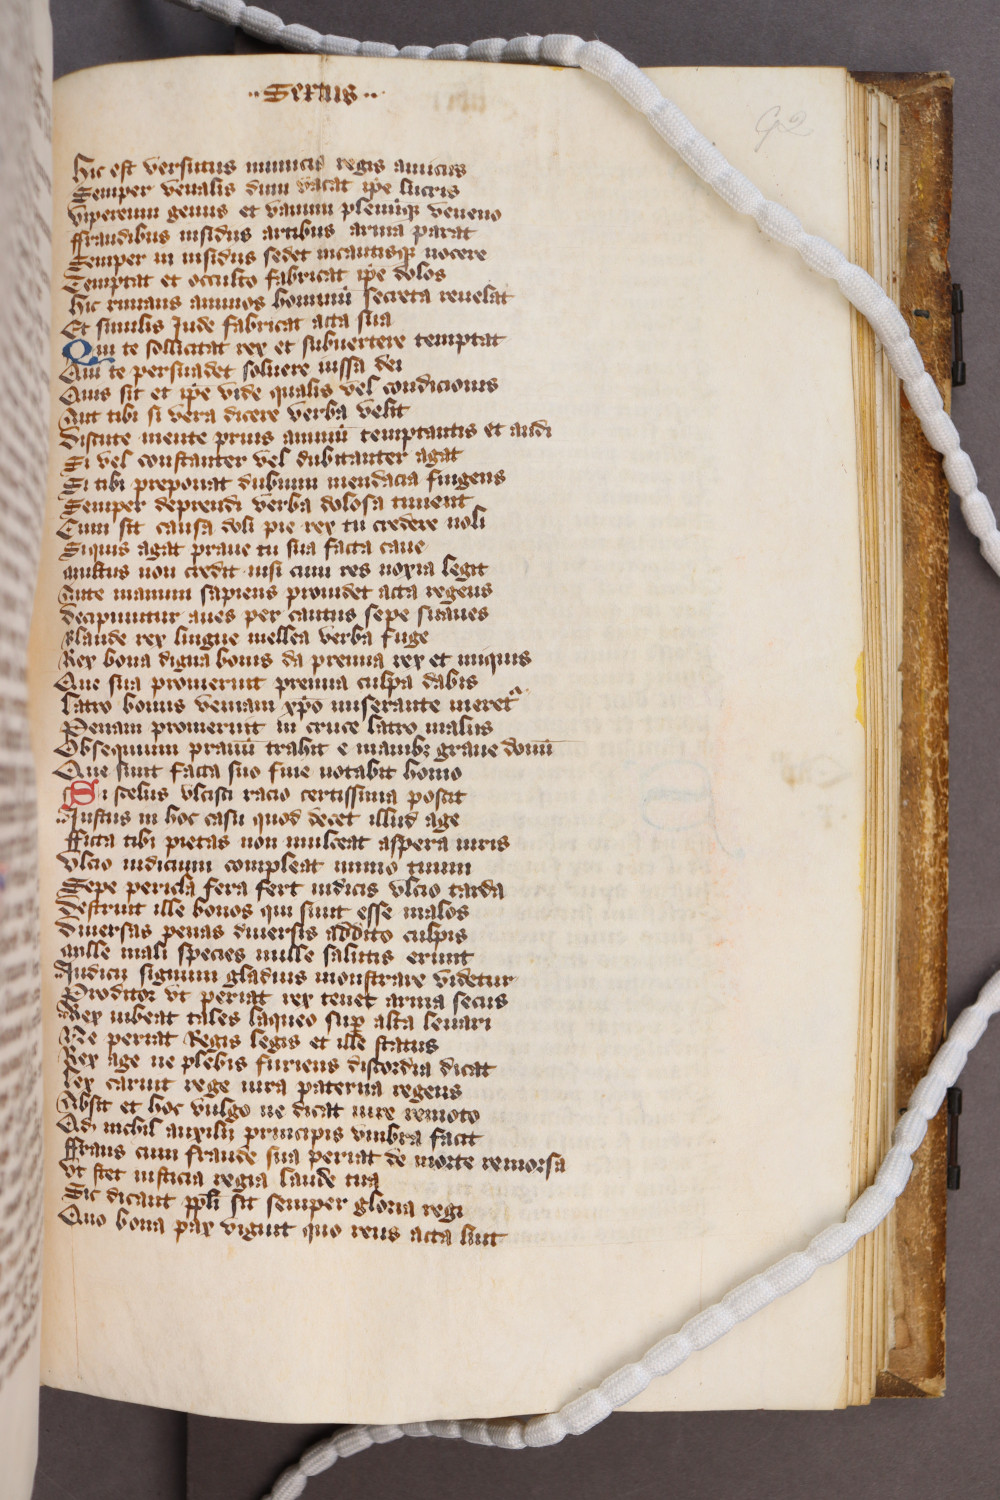 ..Sextus..
G2
Hic est versutus inimicus regis amicus
Semper venalis dum vacat ip̄e lucris
vipereum genus et vanum plenumq̨ veneno
ffraudibus insidiis artibus arma parat
Semper in insidiis sedet incautisq̨ nocere
Temptat et occulto fabricat ip̄e dolos
Hic rimans animos hominū secreta reuelat
Et similis Jude fabricat acta sua
Qui te sollicitat rex et subuertere temptat
Qui te persuadet soluere iussa dei
Quis sit et ip̄e vide qualis vel condicionis
Aut tibi si vera dicere verba velit
Discute mente prius animū temptantis et audi
Si vel constanter vel dubitanter agat
Si tibi preponat dubium mendacia fingens
Semper deprendi verba dolosa timent
Cum sit causa doli pie rex tu credere noli
Siquis agat praue tu sua facta caue
multus non credit nisi cum res noxia legit
Ante manum sapiens prouidet acta regens
decipiuntur aues per cantus sepe suaues
Blande rex lingue mellea verba fuge
Rex bona digna bonis da premia rex et iniquis
Que sua promeruit premia culpa dabis
latro bonus veniam xp̄o miserante meret᷑
Penam promeruit in cruce latro malus
Obsequium prauū trahit e manibꝫ graue donū
Que sunt facta suo fine notabit homo
Si scelus vlcisci racio certissima poscit
Justus in hoc casu quod decet illud age
fficta tibi pietas non mulceat aspera iuris
vlcio iudicium compleat immo tuum
Sepe pericla fera fert iudicis vlcio tarda
Destruit ille bonos qui sinit esse malos
Diuersas penas diuersis addito culpis
mille mali species mille salutis erunt
Iudicii signum gladius monstrare videtur
Proditor vt periat rex tenet arma secus
Rex iubeat tales laqueo sup̱ alta leuari
Ne periat Regis legis et ille status
Rex age ne plebis furiens discordia dicat
lex caruit rege iura paterna regens
Absit et hoc vulgo ne dicat iure remoto
Qd̄ nichil auxilii principis vmbra facit
ffraus cum fraude sua periat de morte remorsa
vt stet iusticia regia laude tua
Sic dicant pp̄li sit semper gloria regi
Quo bona pax viguit quo reus acta luit